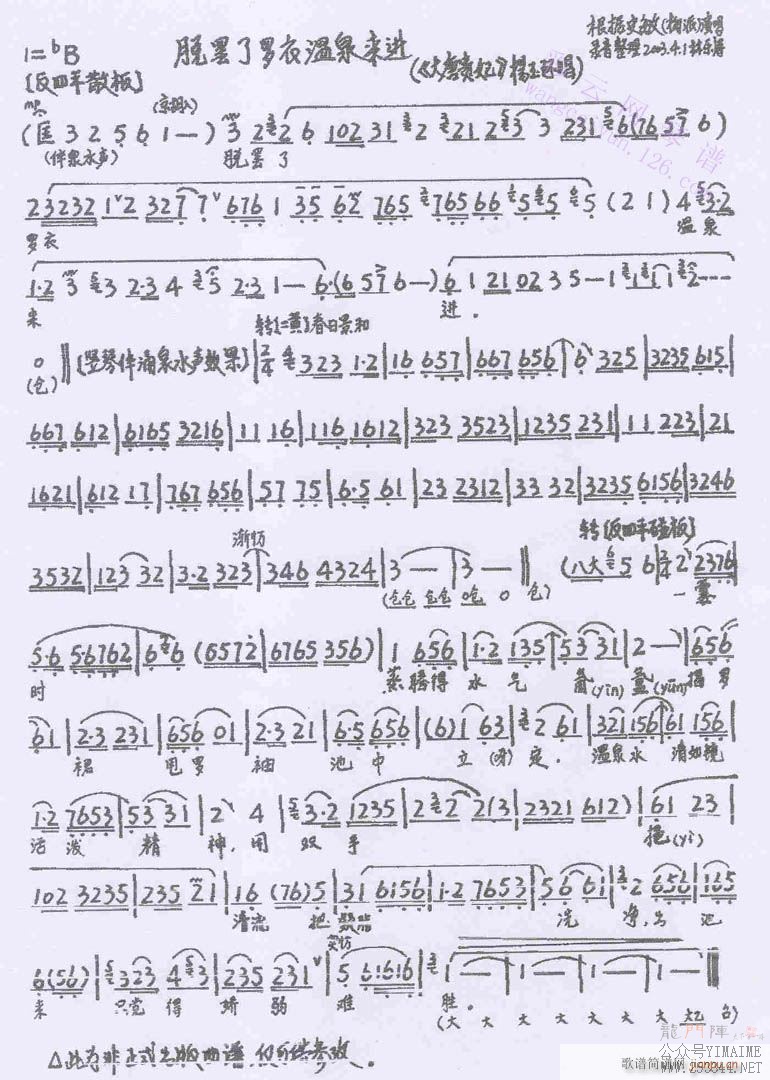 1=ᵇB 脱罢了罗衣温泉来进 根据史敏(梅派)演唱
[反四平散板] (《大唐贵妃》杨玉环唱) 录音整理2003.4.1
(匡 3 2 5 6 1 — ) 3 2 2 6 102 31 2 2 21 2 3 3 231 6 (76 57 6)
(伴泉水声) 脱罢了
23232 1 2 327 7 676 1 35 62 765 765 66 5 5 5 (2 1) 4 3·2
罗衣 温泉
1·2 3 3 2·3 4 5 2·3 1 — 6·(6 57 6 —) 6 1 21 02 35 — 1 1 1 2 - - -
来 进.
转[二黄]春日景和
0 ‖[竖琴伴涌泉水声效果]| 2/4 323 1·2 | 16 657 | 667 656 | 6 325 | 3235 615 |
(仓)
667 612 | 6165 3216 | 11 16 | 116 1612 | 323 3523 | 1235 231 | 11 223 | 21
1621 | 612 17 | 767 656 | 57 75 | 6·5 61 | 23 2312 | 33 32 | 3235 6156 | 3246
渐 转[反四平碰板]
3532 | 123 32 | 3·2 323 | 346 4324 | 3 — | 3 — ‖ (八大 5 6 | 2 2376 |
(仓仓 仓仓 吃 0 仓) 一霎
5·6 56762 | 6 6 (6572 | 6765 356) | 1 656 | 1·2 135 | 53 31 | 2 — | 656
时 蒸腾得 水气 氤(yīn) 氲(yūn) 罗
61 | 2·3 231 | 656 01 | 2·3 21 | 6·5 656 | (6) 1 63 | 2 61 | 321 156 | 61 156 |
裙 甩罗 袖 池中 立(呀)定. 温泉水 清如镜
1·2 7653 | 53 31 | 2 4 | 3·2 1235 | 2 2 2 (3 | 2321 612) | 61 23 |
活泼 精 神,用 双手 (yì)
102 3235 | 235 21 | 16 (76)5 | 31 6156 | 1·2 7653 | 56 61 | 2 656 | 165
清流 把 洗 净,出池
6(56) | 323 4 3 | 235 231 | 5 6161 6 | 1 — | 1 — | 1 — | 1 — | 1 — ‖
来 只觉得 娇弱 难 胜.
(大 大 大 大 大 大 大 大 大 台)
△此为非正式出版曲谱 仅可供参考.
龍門陣
公众号YIMAIME
歌谱简谱网 jianpu.cn